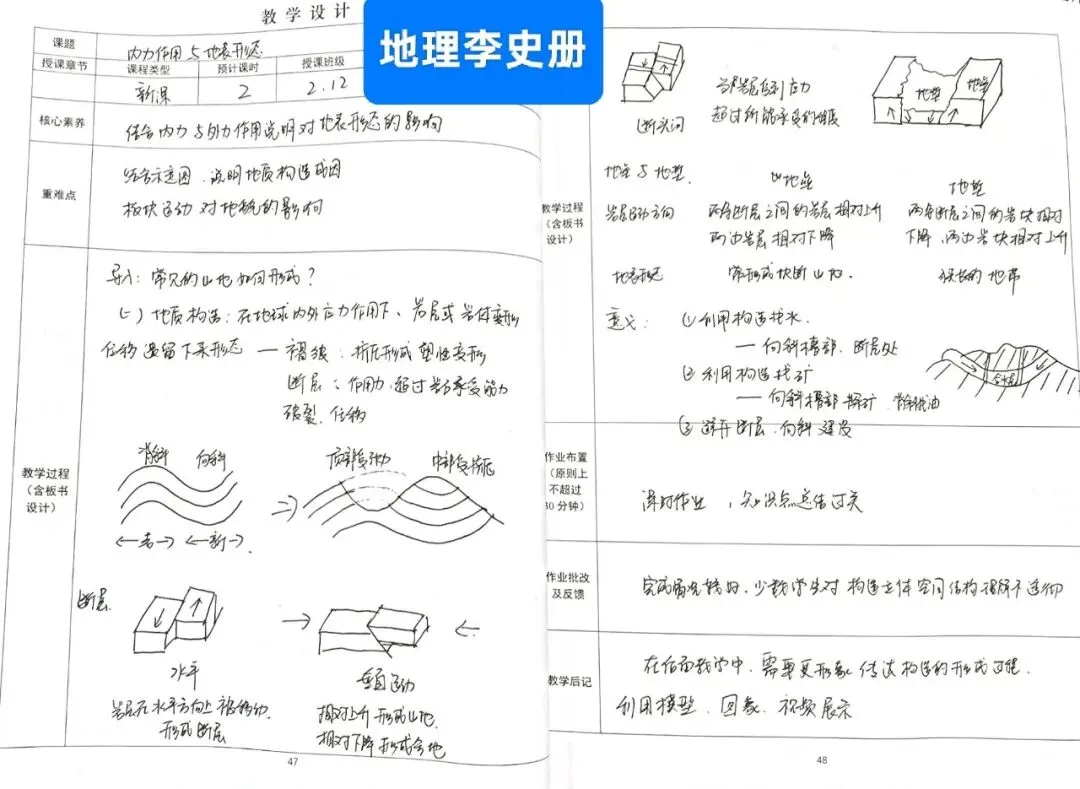 教学设计
地理李史册
课题
内力作用与地表形态
授课章节
课程类型
预计课时
授课班级
新课
2
2.12
核心素养
结合内力与外力作用说明对地表形态的影响
重难点
结合示意图、说明地质构造成因
板块运动对地貌的影响
教学过程
(含板书
设计)
导入:常见的山地如何形成?
(一)地质构造:在地球内外应力作用下、岩层或岩体变形
位移遗留下来形态 — 褶皱:挤压形成塑性变形
断层:作用力超过岩石承受能力
破裂、位移
背斜 向斜
顶部受张力 中部受挤压
←老→ ←新→
断层
水平
垂直运动
岩层在水平方向上被移动.
形成断层
相对上升形成山地.
相对下降形成谷地
47
断层
当岩层受到应力
超过所能承受的
地垒 地堑
教学过程
(含板书
设计)
地垒与地堑.
地垒
地堑
岩层移动方向
两条断层之间的岩层相对上升
两边岩层相对下降
两条断层之间的岩块相对
下降,两边岩块相对上升
地表形态
常形成块断山地.
狭长的地带
意义:
①利用构造找水.
—向斜槽部、断层处
②利用构造找矿
—向斜槽部探矿、背斜找油
③避开断层、向斜建设
含水层
作业布置
(原则上
不超过
30分钟)
课时作业,知识点总结过关
作业批改
及反馈
完成情况较好,少数学生对构造立体空间结构理解不透彻
教学后记
在后面教学中,需要更形象传达构造的形成过程.
利用模型、图象、视频展示
48